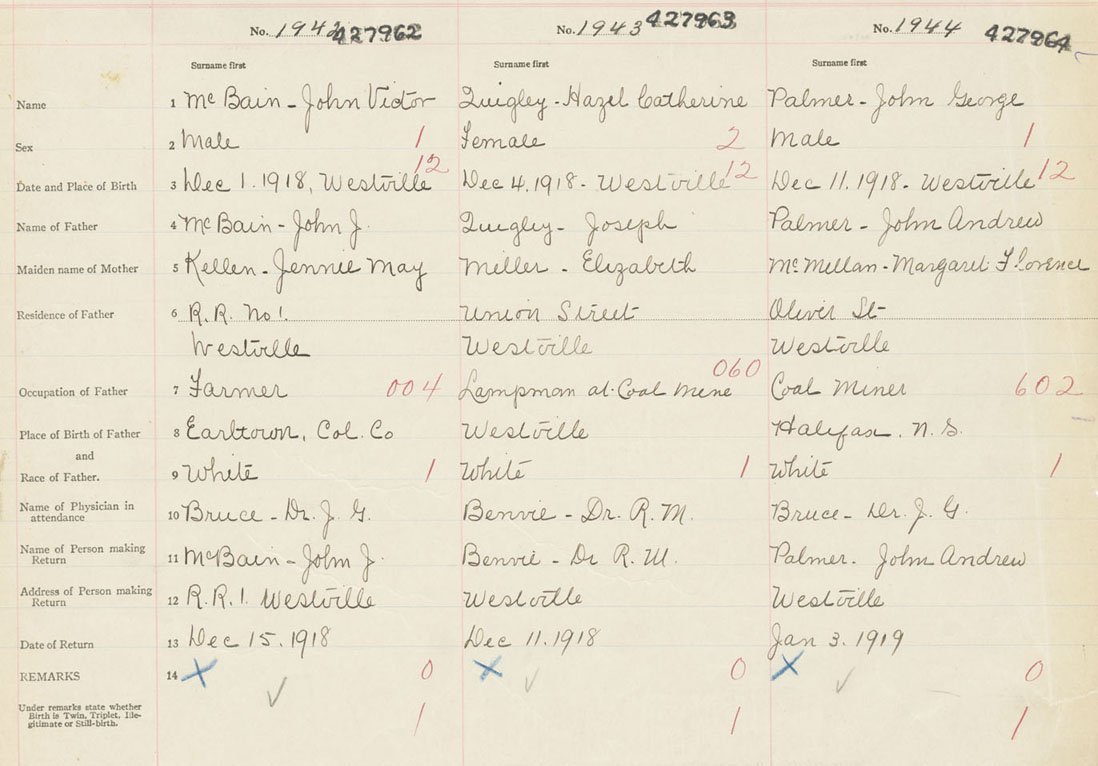 No. 1942 427962 No. 1943 427963 No. 1944 427964
Surname first Surname first Surname first
Name 1 McBain - John Victor Quigley - Hazel Catherine Palmer - John George
Sex 2 Male 1 Female 2 Male 1
12 12 12
Date and Place of Birth 3 Dec 1. 1918, Westville Dec 4. 1918 - Westville Dec 11. 1918 - Westville
Name of Father 4 McBain - John J. Quigley - Joseph Palmer - John Andrew
Maiden name of Mother 5 Kellen - Jennie May Miller - Elizabeth McMellan - Margaret Florence
Residence of Father 6 R.R. No 1. Union Street Oliver St
Westville Westville Westville
Occupation of Father 7 Farmer 004 Lampman at Coal Mine 060 Coal Miner 602
Place of Birth of Father 8 Earltown, Col. Co Westville Halifax, N.S.
and
Race of Father. 9 White 1 White 1 White 1
Name of Physician in
attendance 10 Bruce - Dr. J. G. Benvie - Dr. R. M. Bruce - Dr. J. G.
Name of Person making
Return 11 McBain - John J. Benvie - Dr R. M. Palmer. John Andrew
Address of Person making
Return 12 R.R. 1. Westville Westville Westville
Date of Return 13 Dec 15. 1918 Dec 11. 1918 Jan 3. 1919
REMARKS 14 X 0 X 0 X 0
Under remarks state whether
Birth is Twin, Triplet, Ille-
gitimate or Still-birth. 1 1 1